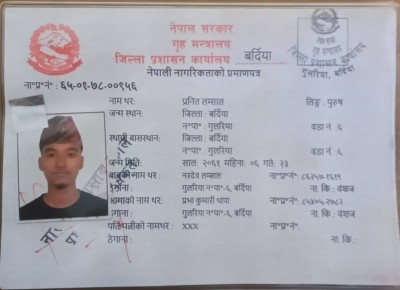 नेपाल सरकार
गृह मन्त्रालय
जिल्ला प्रशासन कार्यालय बर्दिया
नेपाली नागरिकताको प्रमाणपत्र
ना॰प्र॰नं॰: ६५-०१-७८-००९५६
नाम थर: प्रनित लम्साल लिङ्ग: पुरुष
जन्म स्थान: जिल्ला: बर्दिया
न॰पा॰: गुलरिया वडा नं: ६
स्थायी बासस्थान: जिल्ला: बर्दिया
न॰पा॰: गुलरिया वडा नं: ६
जन्म मिति: साल: २०६१ महिना: ०६ गते: २३
बाबुको नाम थर: नरदेव लम्साल ना॰प्र॰नं॰:
ठेगाना: गुलरिया न॰पा॰-६, बर्दिया ना. कि.: वंशज
आमाको नाम थर: प्रभा कुमारी थापा ना॰प्र॰नं॰:
ठेगाना: गुलरिया न॰पा॰-६, बर्दिया ना. कि.: वंशज
पति/पत्नीको नामथर: xxx ना॰प्र॰नं॰:
ठेगाना: ना. कि.:
जिल्ला प्रशासन कार्यालय
गुलरिया, बर्दिया